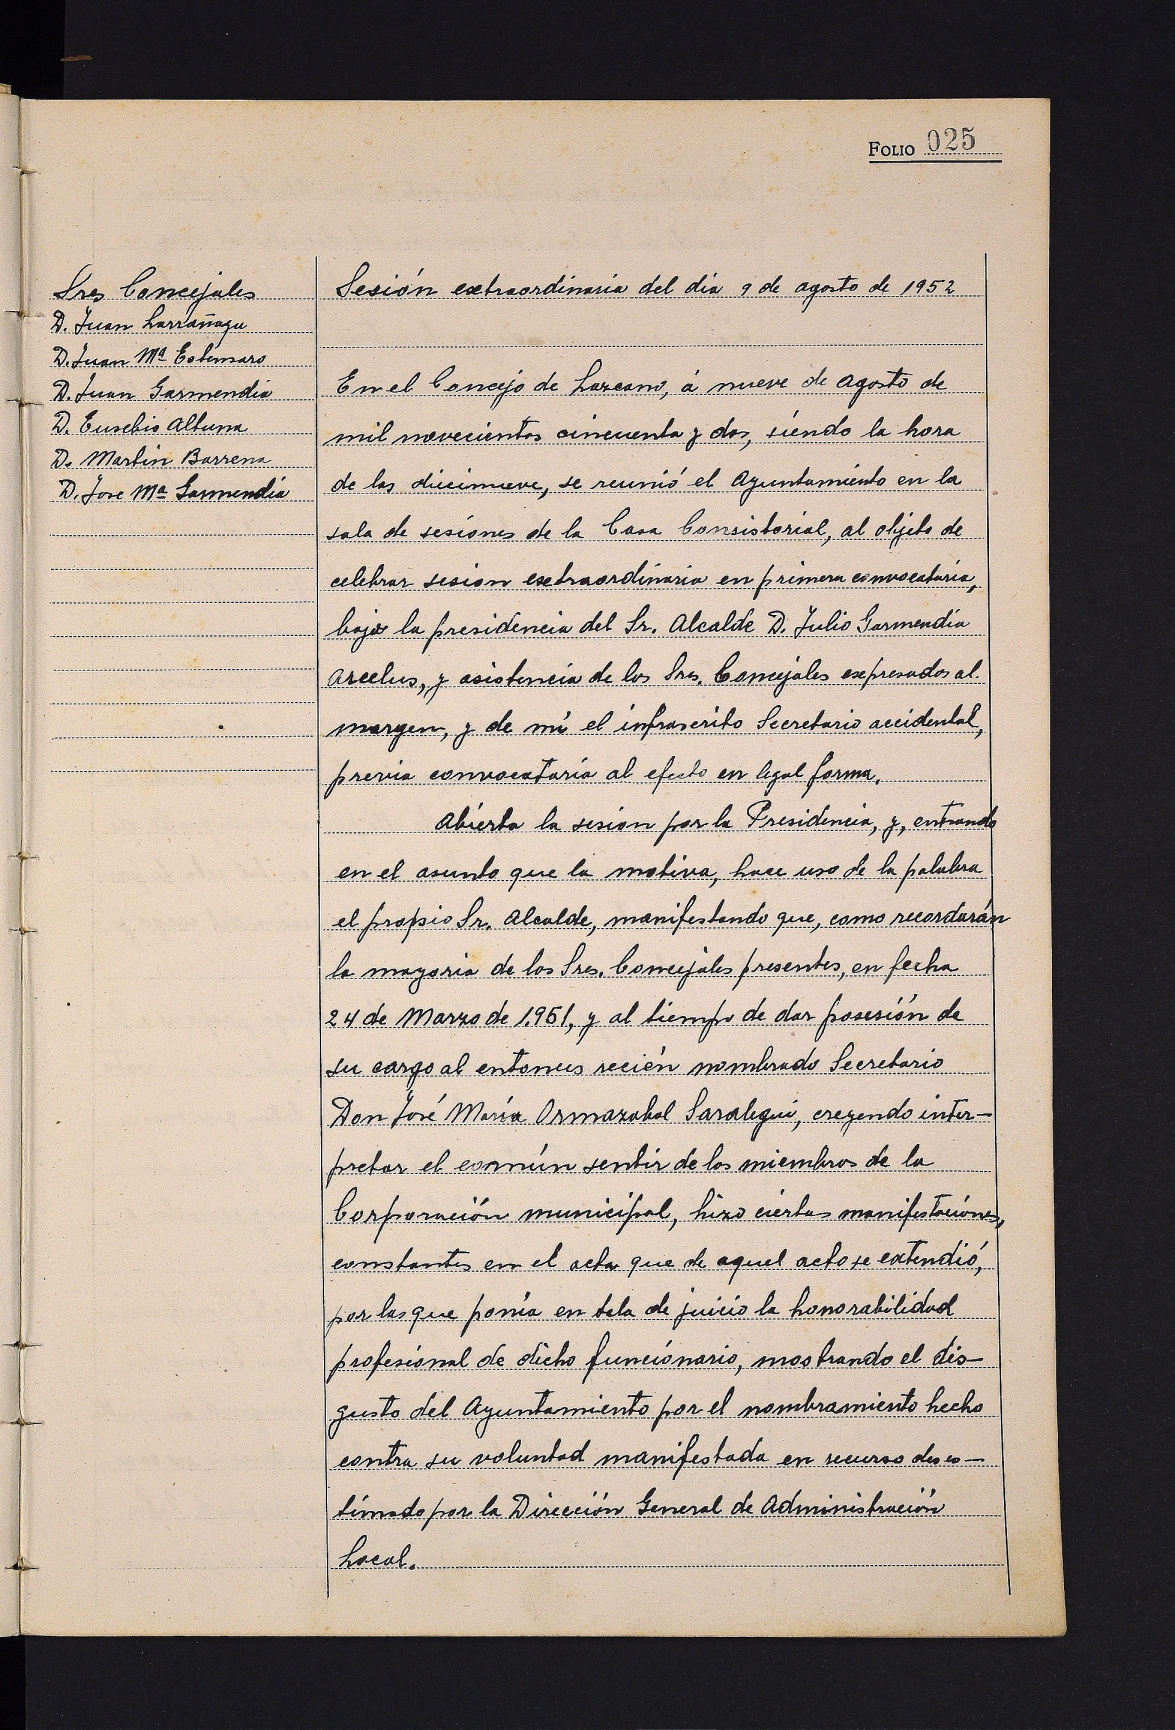 FOLIO 025
Sres Concejales
D. Juan Larrañaga
D. Juan Mª Estensoro
D. Juan Garmendia
D. Eusebio Altuna
D. Martin Barrena
D. Jose Mª Garmendia
Sesión extraordinaria del dia 9 de agosto de 1952
En el Concejo de Lazcano, á nueve de Agosto de
mil novecientos cincuenta y dos, siendo la hora
de las diecinueve, se reunió el Ayuntamiento en la
sala de sesiones de la Casa Consistorial, al objeto de
celebrar sesion extraordinaria en primera convocatoria,
bajo la presidencia del Sr. Alcalde D. Julio Garmendia
Arcelus, y asistencia de los Sres. Concejales expresados al
margen, y de mi el infrascrito Secretario accidental,
previa convocatoria al efecto en legal forma.
Abierta la sesion por la Presidencia, y, entrando
en el asunto que la motiva, hace uso de la palabra
el propio Sr. Alcalde, manifestando que, como recordarán
la mayoria de los Sres. Concejales presentes, en fecha
24 de Marzo de 1.951, y al tiempo de dar posesión de
su cargo al entonces recién nombrado Secretario
Don José María Ormazabal Saralegui, creyendo inter-
pretar el común sentir de los miembros de la
Corporación municipal, hizo ciertas manifestaciones,
constantes en el acta que de aquel acto se extendió,
por las que ponia en tela de juicio la honorabilidad
profesional de dicho funcionario, mostrando el dis-
gusto del Ayuntamiento por el nombramiento hecho
contra su voluntad manifestada en recurso deses-
timado por la Dirección General de Administración
Local.